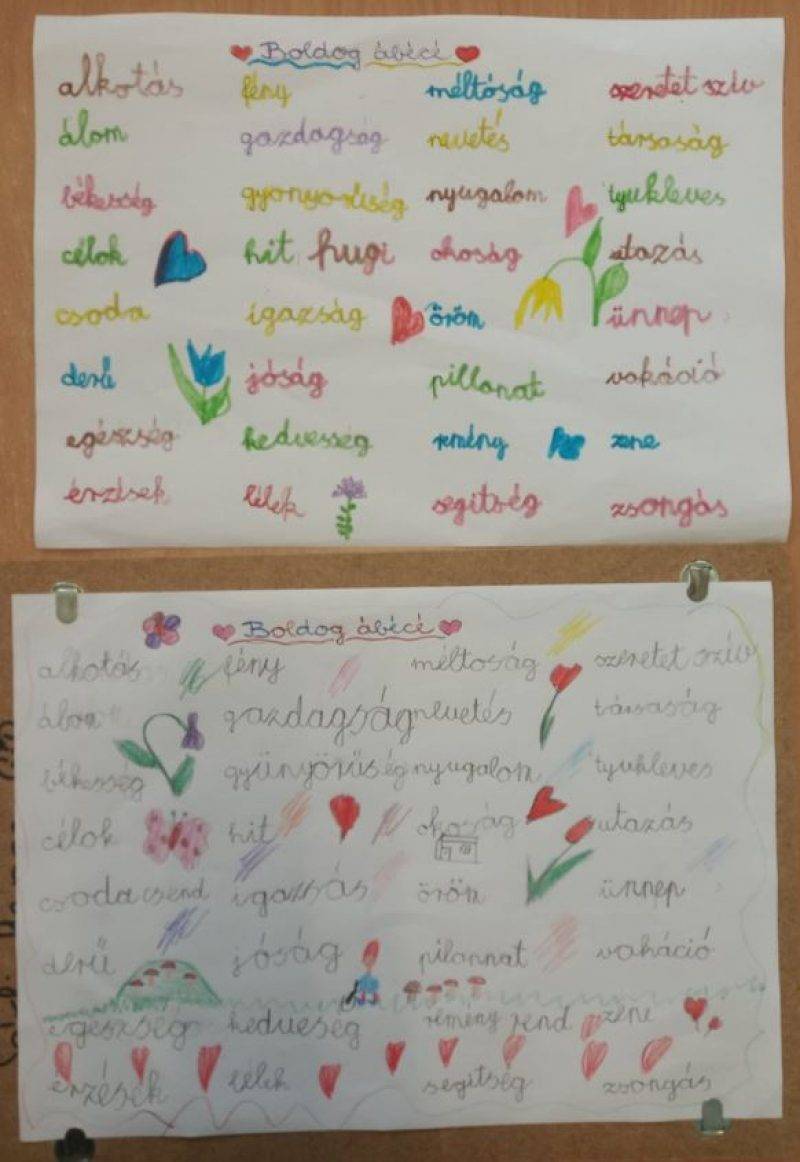 Boldog ábécé
alkotás fény méltóság szeretet szív
álom gazdagság nevetés társaság
békesség gyönyörűség nyugalom tyukleves
célok hit hugi okoság utazás
csoda igazság öröm ünnep
derű jóság pillanat vakáció
egészség kedvesség remény zene
érzések lélek segitség zsongás
Boldog ábécé
alkotás fény méltoság szeretet szív
álom gazdagság nevetés társaság
békesség gyünyörűség nyugalom tyukleves
célok hit okoság utazás
csoda csend igazsás öröm ünnep
derű jóság pilannat vakáció
egészség kedveség remény rend zene
érzések lélek segitség zsongás